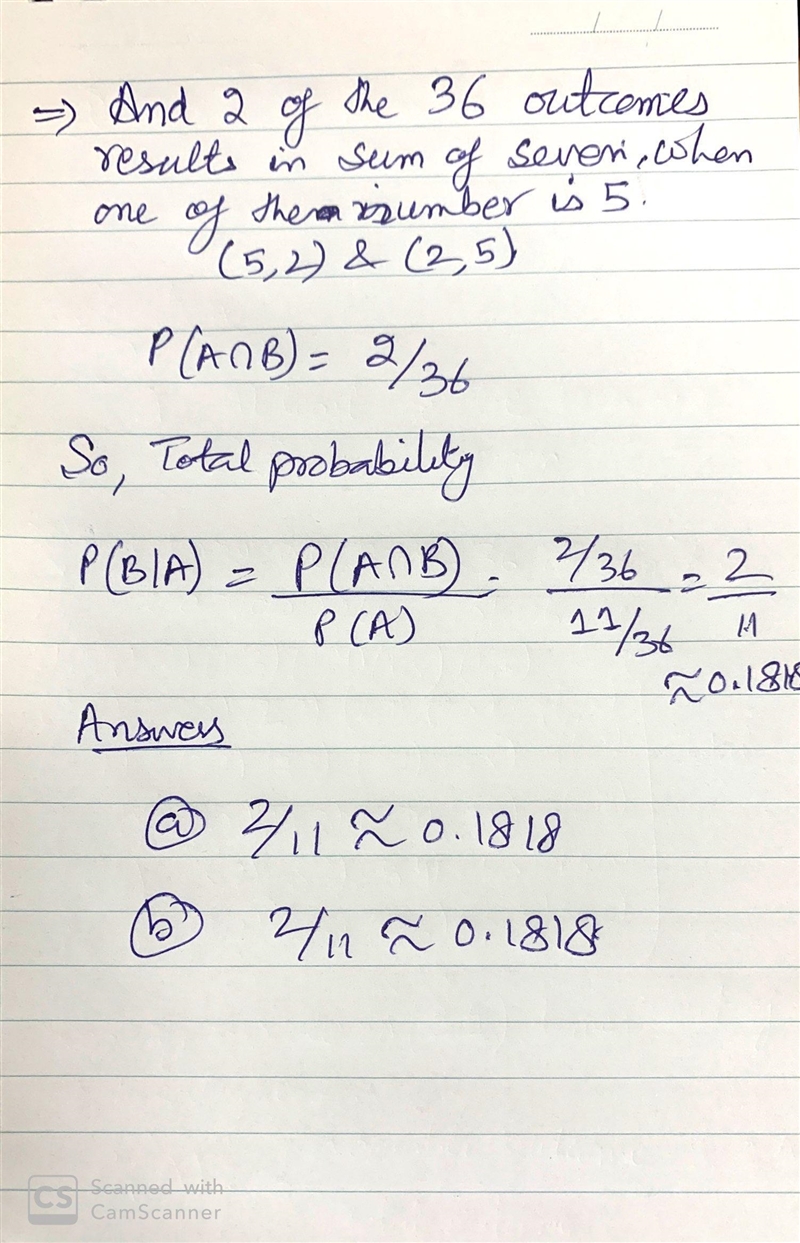 ⇒ And 2 of the 36 outcomes
results in sum of seven, when
one of the number is 5.
(5,2) & (2,5)
P(A∩B) = 2/36
So, Total probability
P(B|A) = P(A∩B)/P(A) = (2/36)/(11/36) = 2/11
≈0.1818
Answers
ⓐ 2/11 ≈ 0.1818
ⓑ 2/11 ≈ 0.1818
CS Scanned with
CamScanner